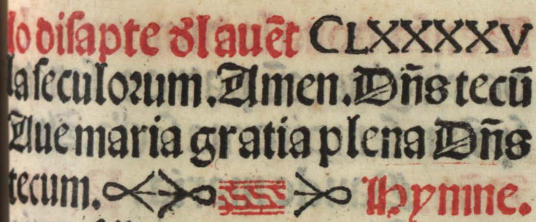 lo disapte dl auēt CLXXXXV
la seculorum. Amen. Dn̄s tecū
Aue maria gratia plena Dn̄s
tecum. Hymne.